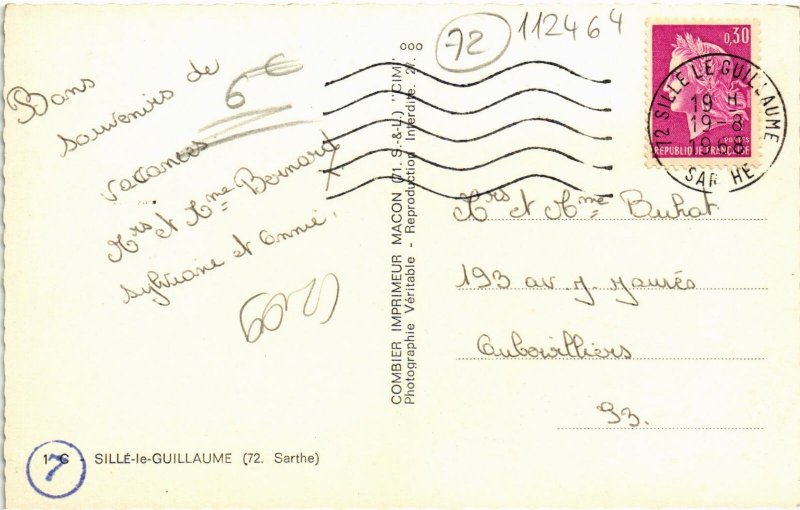 Bons
souvenirs de
vacances
Mrs et Mme Bernard
Sylviane et Annie.
6€
72
112464
ooo
0,30
POSTES
REPUBLIQUE FRANÇAISE
72 SILLE LE GUILLAUME
19 H
19-8
SARTHE
COMBIER IMPRIMEUR MACON (71. S.-&-L.) "CIM"
Photographie Véritable - Reproduction Interdite. 27.
Mrs et Mme Buhat
193 av. J. Jaurés
Aubervilliers
93.
7
1 C - SILLÉ-le-GUILLAUME (72. Sarthe)